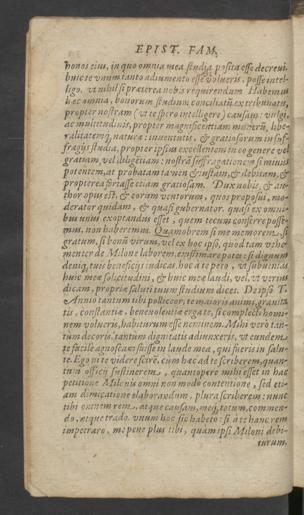 EPIST. FAM,
honos eius, in quo omnia mea studia posita esse decreui.
huic te vnum tanto adiumento esse volueris, posse intel-
ligo, vt nihil sit præterea nobis requirendum. Habemus
hæc omnia, bonorum studium conciliatum ex tribunatu,
propter nostram (vt te spero intelligere) causam: vulgi,
ac multitudinis, propter magnificentiam munerum, libe-
ralitatemq́, naturæ: iuuentutis, & gratiosorum in suf-
fragijs studia, propter ipsius excellentem in eo genere vel
gratiam, vel diligẽtiam: nostrã suffragationem si minus
potentem, at probatam tamen & iustam, & debitam, &
propterea fortasse etiam gratiosam. Dux nobis, & au-
thor opus est, & eorum ventorum, quos proposui, mo-
derator quidam, & quasi gubernator: qui si ex omni-
bus vnus exoptandus esset, quem tecum conferre posse-
mus, non haberemus. Quamobrem si me memorem, si
gratum, si bonũ virum, vel ex hoc ipso, quod tam vehe-
menter de Milone laborem, existimare potes: si dignum
deniq, tuis beneficijs iudicas, hoc a te peto, vt subuenias
huic meæ solicitudini, & huic meæ laudi, vel, vt verius
dicam, propriæ saluti tuum studium dices. De ipso T.
Annio tantum tibi polliceor, te maioris animi, grauita
tis, constantiæ, beneuolentiæ erga te, si complecti homi-
nem volueris, habiturum esse neminem. Mihi vero tan-
tum decoris, tantum dignitatis adiunxeris, vt eundem
te facile agnoscam fuisse in laude mea, qui fueris in salu-
te. Ego ni te videre scirē, cum hæc ad te scriberem, quan-
tum officij sustinerem, quantopere mihi esset in hac
petitione Milonis omni non modo contentione, sed eti-
am dimicatione elaborandum, plura scriberem: nunc
tibi omnem rem, atque causam, meq́, totum, commen-
do, atque trado. vnum hoc sic habeto: si a te hanc rem
impetraro, me pene plus tibi, quam ipsi Miloni debi-
turum.